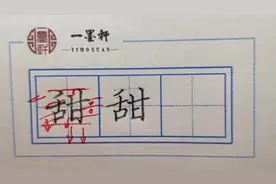 一墨轩
YIMOXUAN
甜 甜